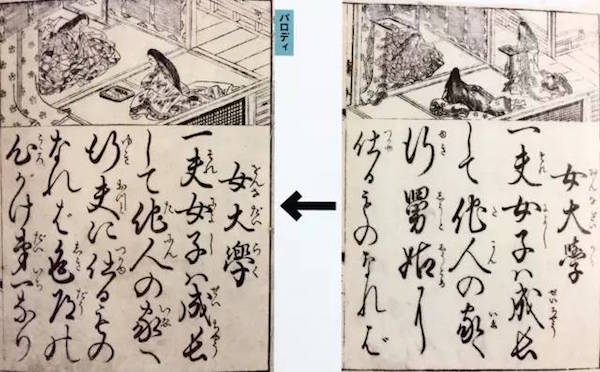 女大學
一夫女子ハ成長
して他人の家へ
行舅姑に
仕るものなれば
パロディ
女大學
一夫女子ハ成長
して他人の家へ
行夫に仕るもの
なれば色道の
心がけ第一なり